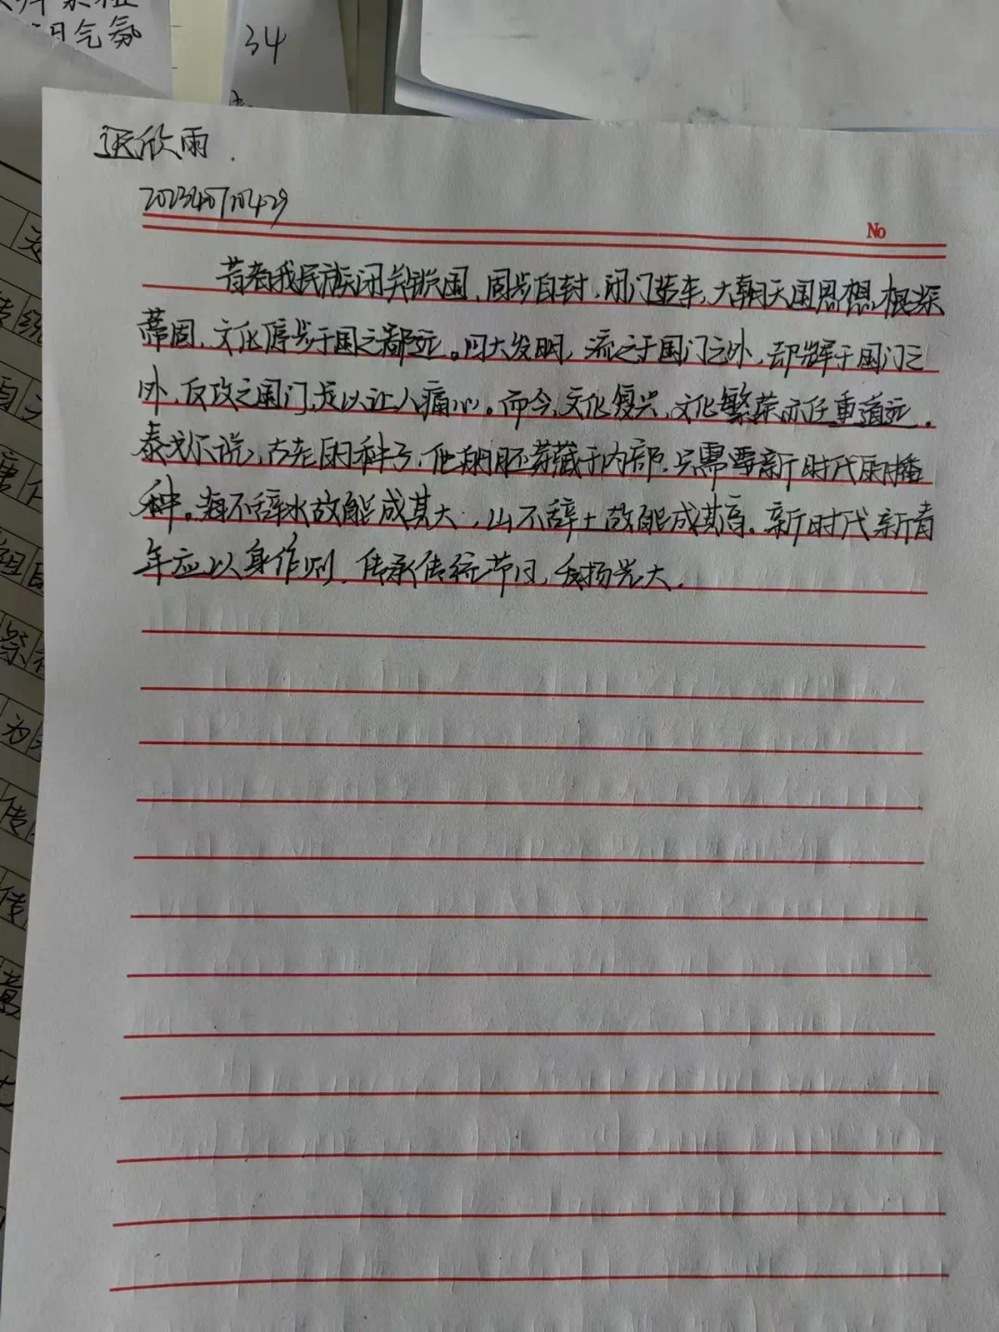 气氛
34
迟欣雨.
202340710429
No
昔者我民族闭关锁国、固步自封、闭门造车,大朝天国思想,根深
蒂固,文化停步于国之鄙远。四大发明,流之于国门之外,却辉于国门之
外,反攻之国门,足以让人痛心。而今,文化复兴,文化繁荣亦任重道远。
泰戈尔说,古老的种子,他胚芽藏于内部,只需要新时代的播
种。海不辞水故能成其大,山不辞土故能成其高。新时代新青
年应以身作则,传承传统节日,发扬光大.